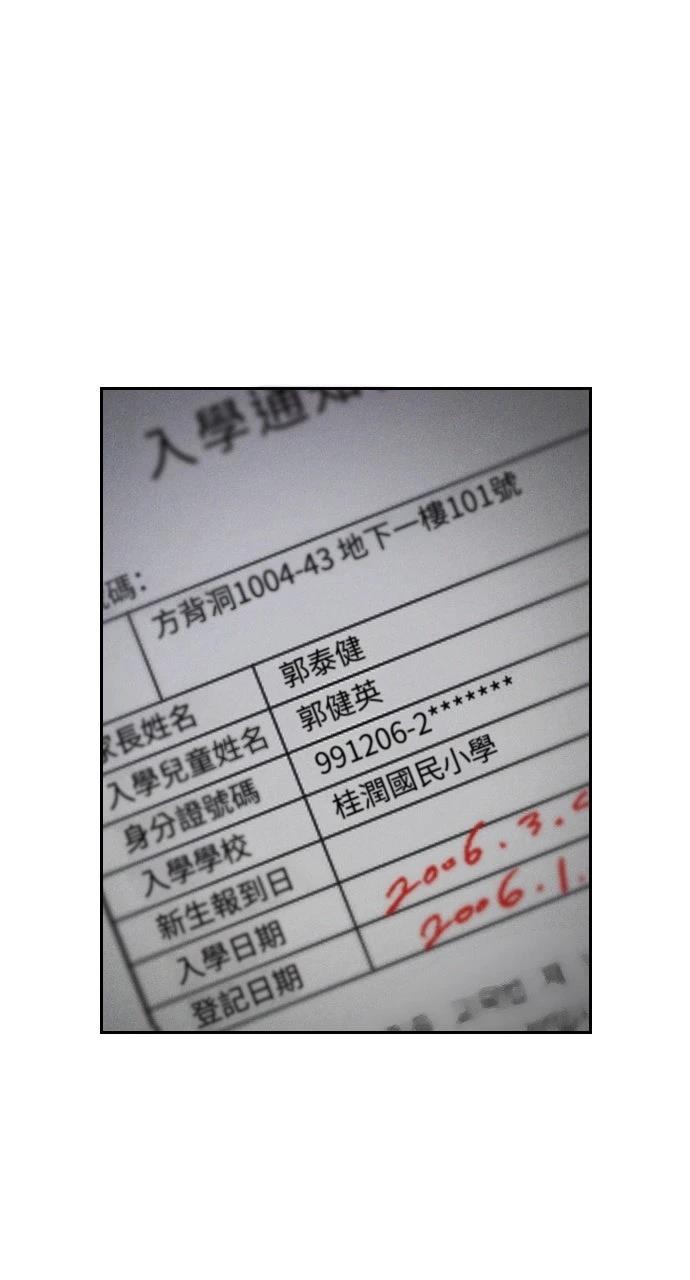 入學通知
碼:
方背洞1004-43 地下一樓101號
家長姓名 郭泰健
入學兒童姓名 郭健英
身分證號碼 991206-2*******
入學學校 桂潤國民小學
新生報到日
入學日期 2006.3.
登記日期 2006.1.